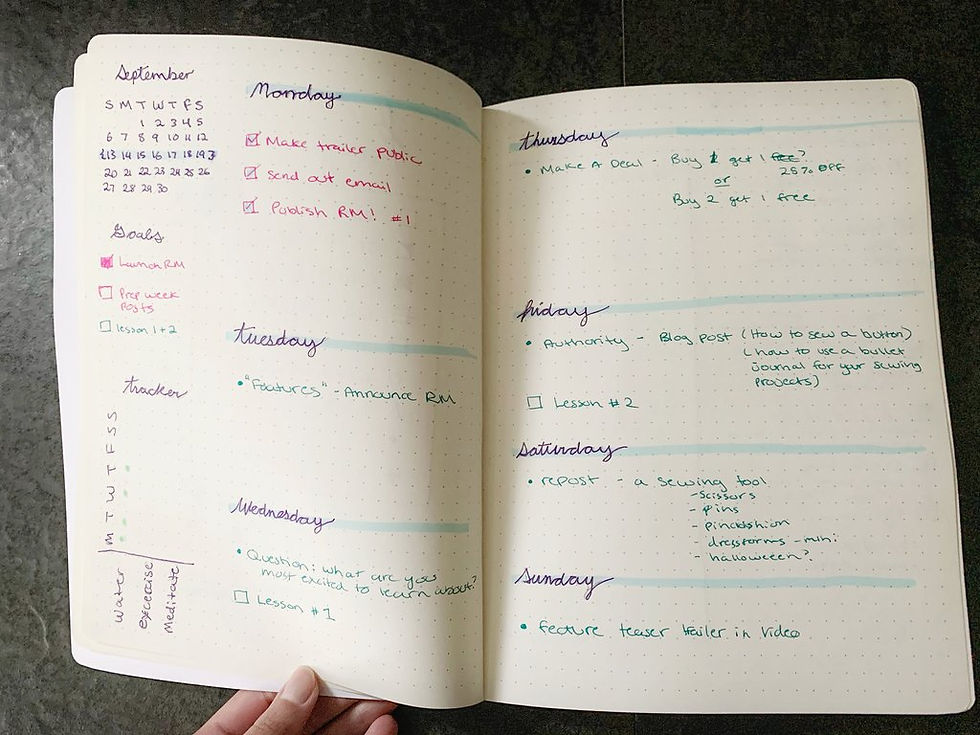 September
S M T W T F S
1 2 3 4 5
6 7 8 9 10 11 12
13 14 15 16 17 18 19
20 21 22 23 24 25 26
27 28 29 30
Goals
Launch RM
Prep week
posts
lesson 1+2
tracker
M T W T F S S
Water
excercise
Meditate
Monday
Make trailer public
send out email
Publish RM! #1
Tuesday
• "Features" - Announce RM
Wednesday
• Question: what are you
most excited to learn about?
Lesson #1
Thursday
• Make A Deal - Buy 1 get 1 free?
25% OFF
or
Buy 2 get 1 free
Friday
• Authority - Blog post (How to sew a button)
(how to use a bullet
journal for your sewing
projects)
Lesson #2
Saturday
• repost - a sewing tool
- scissors
- pins
- pincushion
- dressforms - mini
- halloween?
Sunday
• feature teaser trailer in video